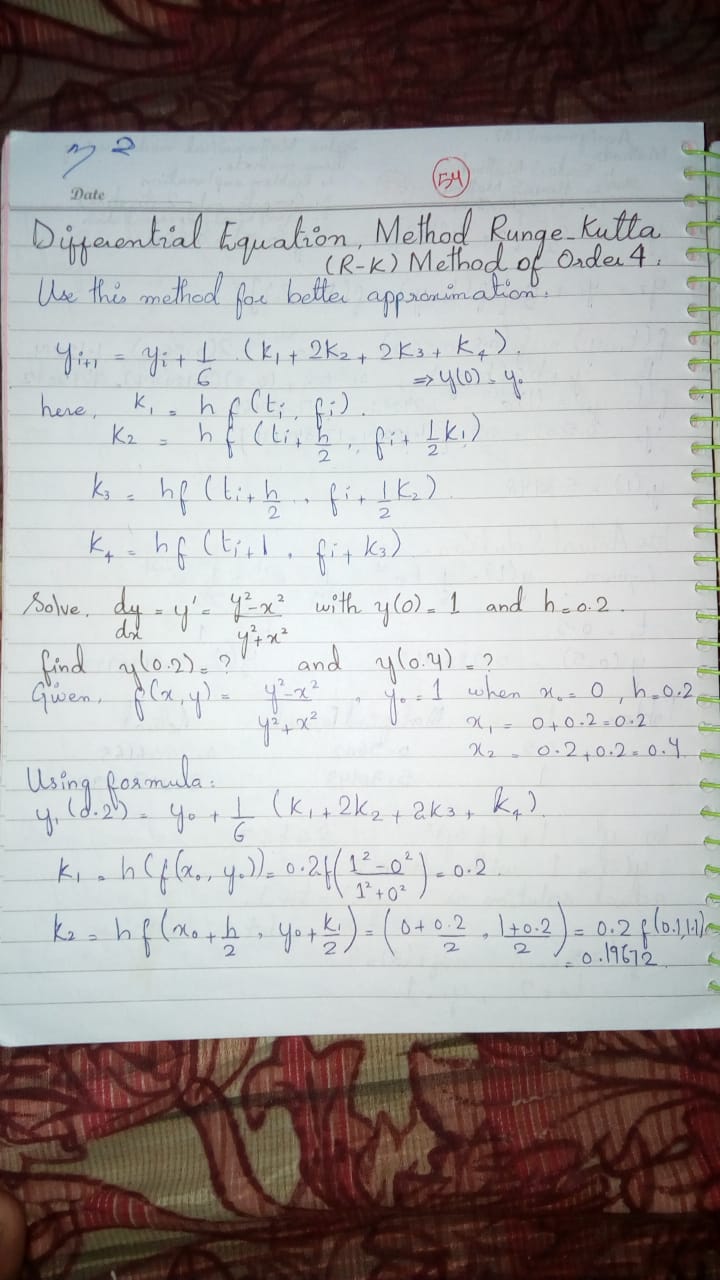 2
54
Date
Differential Equation, Method Runge-Kutta
(R-K) Method of Order 4.
Use this method for better approximation.
y_{i+1} = y_i + 1/6 (K_1 + 2K_2 + 2K_3 + K_4).
=> y(0) = y_0
here, K_1 = h f(t_i, f_i).
K_2 = h f (t_i + h/2, f_i + 1/2 K_1)
K_3 = h f (t_i + h/2, f_i + 1/2 K_2)
K_4 = h f (t_i + 1, f_i + K_3)
Solve. dy/dx = y' = y²-x²/y²+x² with y(0) = 1 and h = 0.2.
find y(0.2) = ? and y(0.4) = ?
Given, f(x, y) = y²-x²/y²+x², y_0 = 1 when x_0 = 0, h = 0.2
x_1 = 0+0.2 = 0.2
x_2 = 0.2+0.2 = 0.4
Using formula:
y_1(0.2) = y_0 + 1/6 (K_1 + 2K_2 + 2K_3 + K_4)
K_1 = h(f(x_0, y_0)) = 0.2f(1²-0²/1²+0²) = 0.2
K_2 = h f(x_0 + h/2, y_0 + K_1/2) = (0 + 0.2/2, 1+0.2/2) = 0.2 f(0.1, 1.1)
= 0.19672